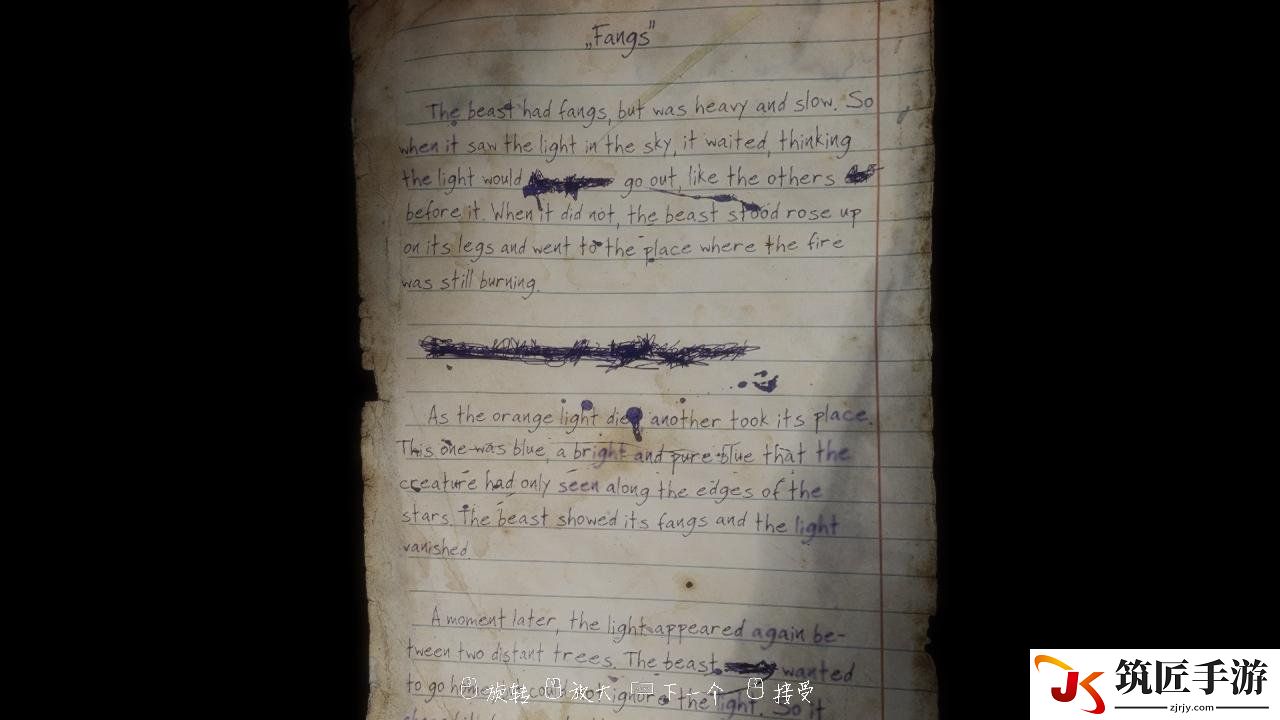 „Fangs”
The beast had fangs, but was heavy and slow. So
when it saw the light in the sky, it waited, thinking
the light would go out, like the others
before it. When it did not, the beast stood rose up
on its legs and went to the place where the fire
was still burning.
As the orange light died another took its place.
This one was blue, a bright and pure blue that the
creature had only seen along the edges of the
stars. The beast showed its fangs and the light
vanished.
A moment later, the light appeared again be-
tween two distant trees. The beast wanted
to go the light. So it
旋转 放大 下一个 接受
筑匠手游
zjrjy.com